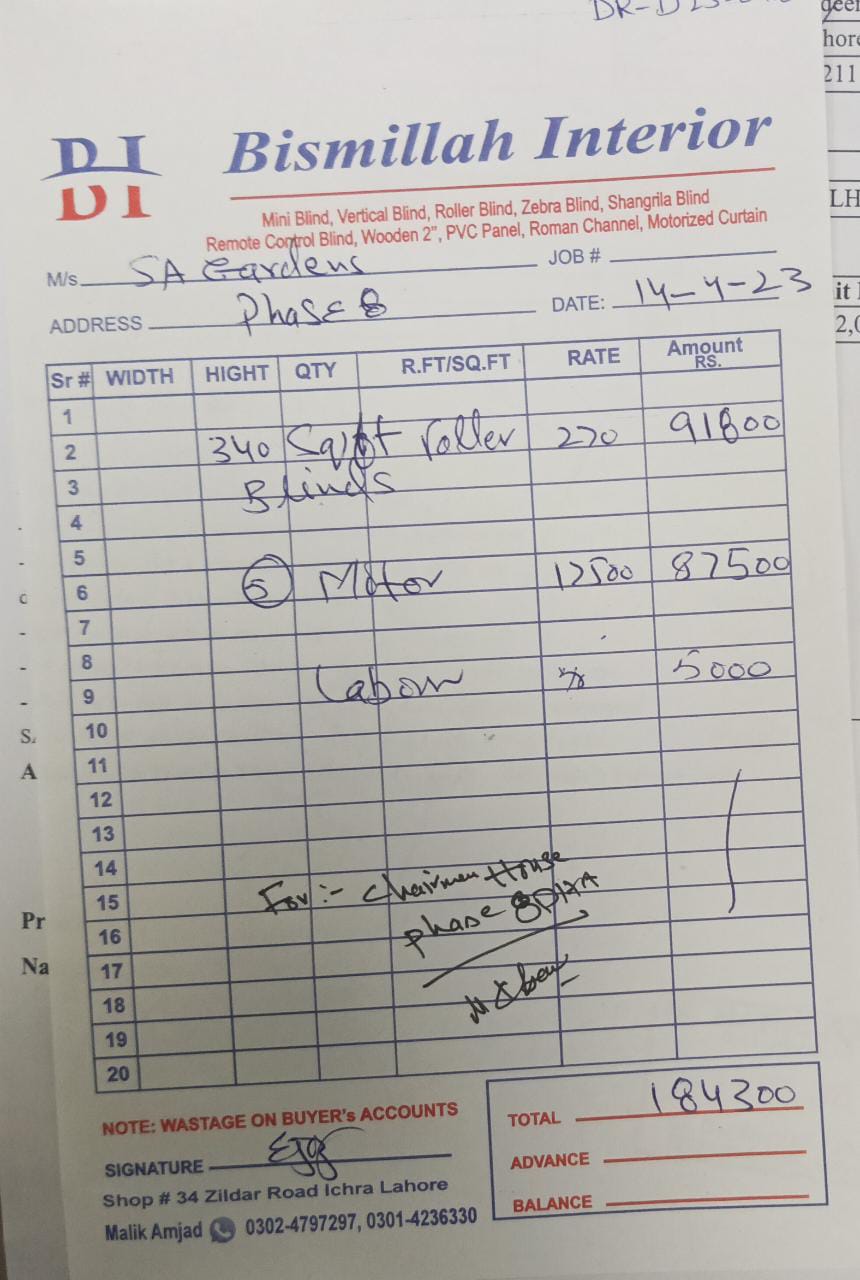 DI
DI
Bismillah Interior
Mini Blind, Vertical Blind, Roller Blind, Zebra Blind, Shangrila Blind
Remote Control Blind, Wooden 2", PVC Panel, Roman Channel, Motorized Curtain
M/s. SA Gardens JOB #
ADDRESS Phase 8 DATE: 14-4-23
Sr # WIDTH HIGHT QTY R.FT/SQ.FT RATE Amount RS.
1
2 340 Sq/ft roller 270 91800
3 Blinds
4
5
6 Motor 12500 87500
7
8
9 Labour 5000
10
11
12
13
14
15 For :- Chairman House
16 phase 8 DHA
17
18
19
20
NOTE: WASTAGE ON BUYER's ACCOUNTS
TOTAL 184300
SIGNATURE
ADVANCE
Shop # 34 Zildar Road Ichra Lahore
BALANCE
Malik Amjad 0302-4797297, 0301-4236330
hore
211
LH
it
2,0
A
Pr
Na